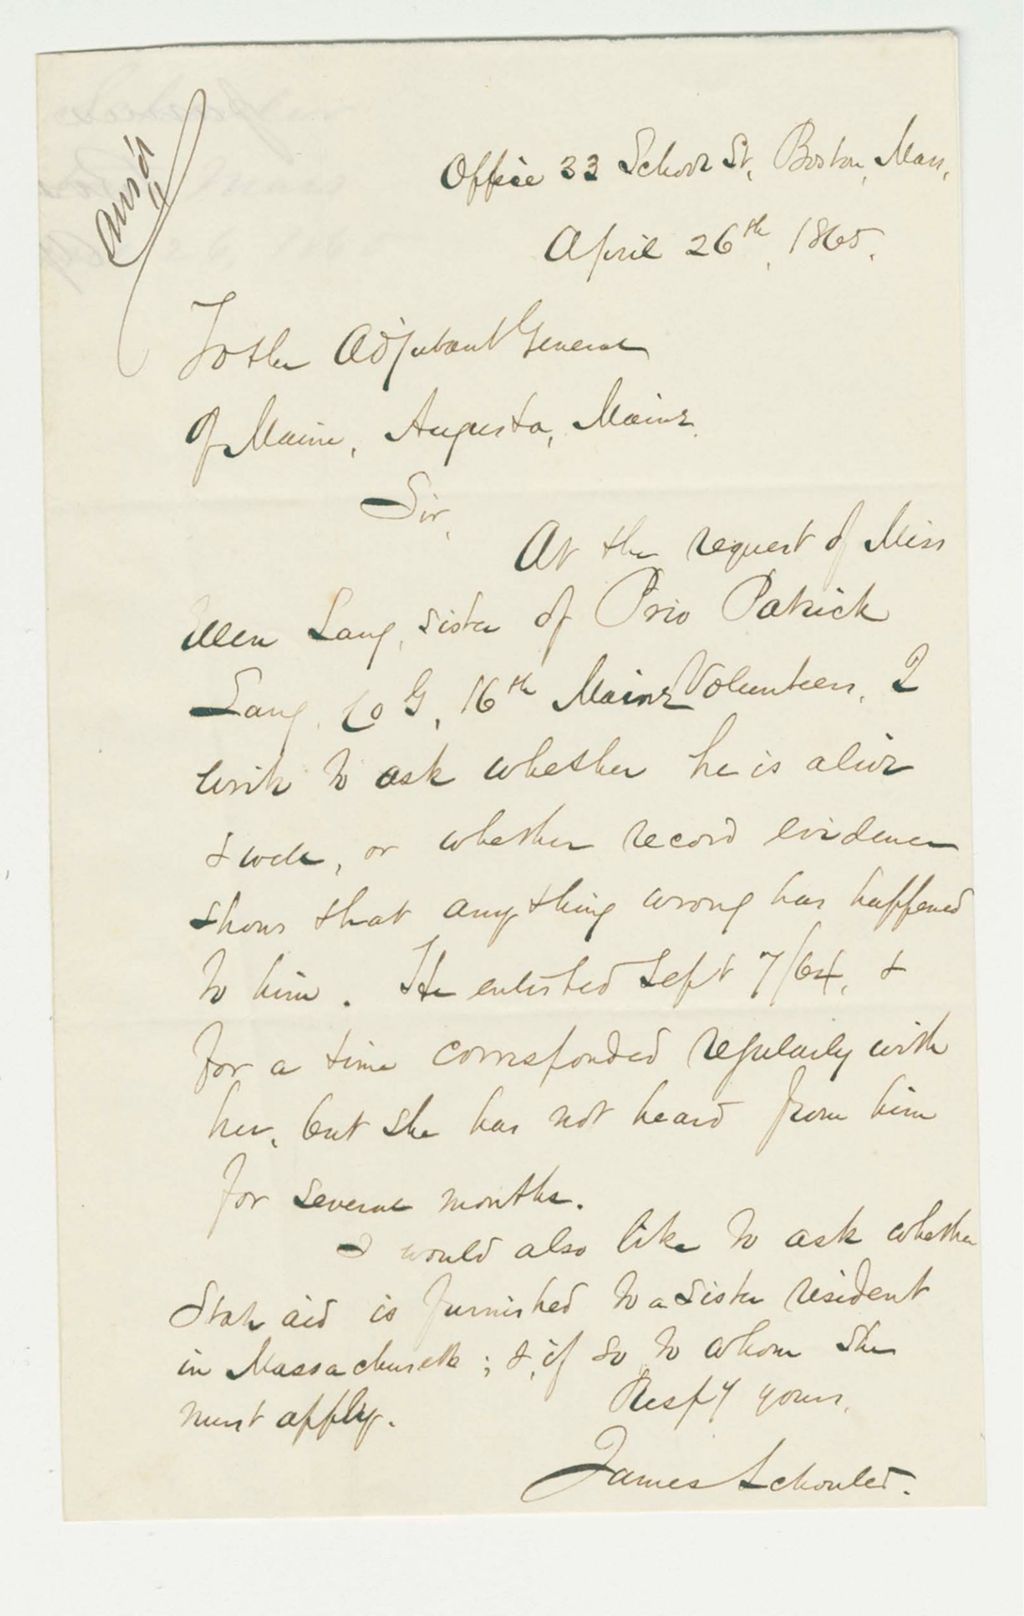 Ans'd
Office 33 School St, Boston, Mass,
April 26th, 1865.
To the Adjutant General
of Maine, Augusta, Maine.
Sir,
At the request of Miss
Ellen Lang, sister of Priv Patrick
Lang, Co G, 16th Maine Volunteers, I
write to ask whether he is alive
& well, or whether record evidence
shows that any thing wrong has happened
to him. He enlisted Sept 7/64, &
for a time corresponded regularly with
her, but she has not heard from him
for several months.
I would also like to ask whether
State aid is furnished to a sister resident
in Massachusetts; &, if so, to whom she
must apply.
Respy yours,
James Schouler.